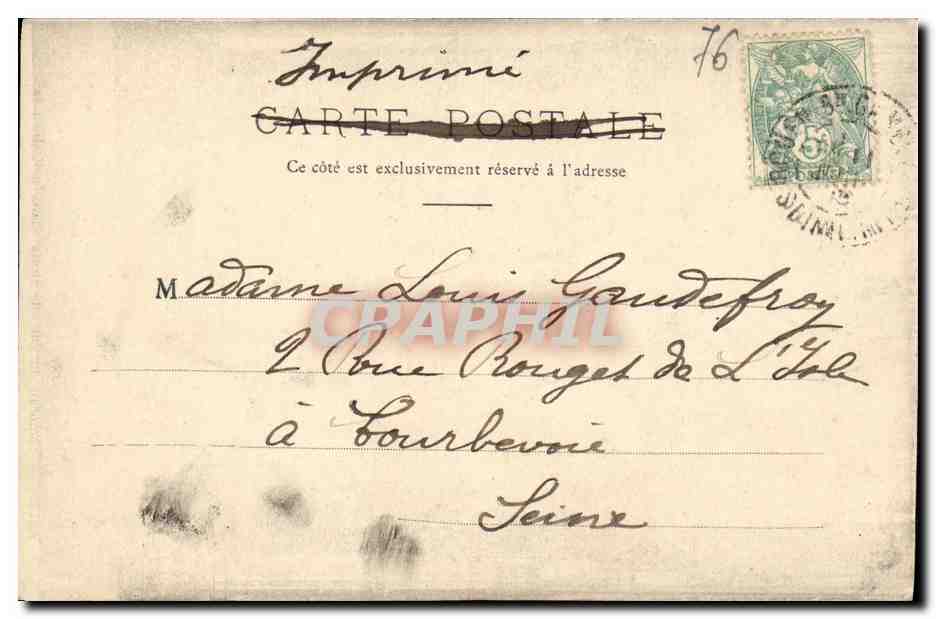 76
Imprimé
CARTE POSTALE
Ce côté est exclusivement réservé à l'adresse
5
Madame Louis Gaudefroy
CPAPHIL
2 Rue Rouget de L'Isle
à Courbevoie
Seine